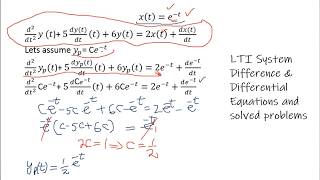 x(t)=e⁻ᵗ
d²/dt² y(t)+5 dy(t)/dt (t) + 6y(t) = 2x(t)+ dx(t)/dt
Lets assume yₚ=Ce⁻ᵗ
d²/dt² yₚ(t)+5 dyₚ(t)/dt (t) + 6yₚ(t) = 2e⁻ᵗ + de⁻ᵗ/dt
d²/dt² Ce⁻ᵗ+5 dCe⁻ᵗ/dt (t) + 6Ce⁻ᵗ = 2e⁻ᵗ + de⁻ᵗ/dt
Ce⁻ᵗ-5ce⁻ᵗ+6ce⁻ᵗ=2e⁻ᵗ-e⁻ᵗ
e⁻ᵗ(c-5c+6c)=e⁻ᵗ
2c=1⟹c=1/2
yₚ(t)=1/2 e⁻ᵗ
LTI System
Difference &
Differential
Equations and
solved problems